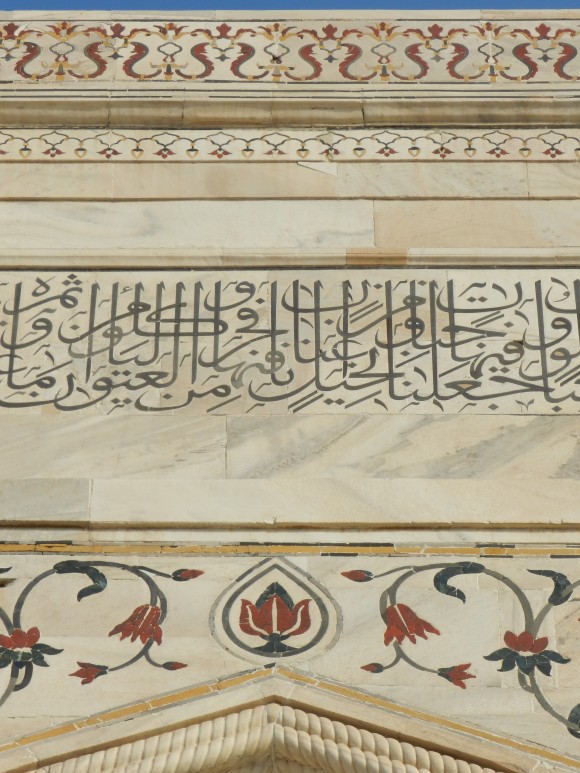 وجعلنا فيها جنات من نخيل وأعناب وفجرنا فيها من العيون ليأكلوا من ثمره وما